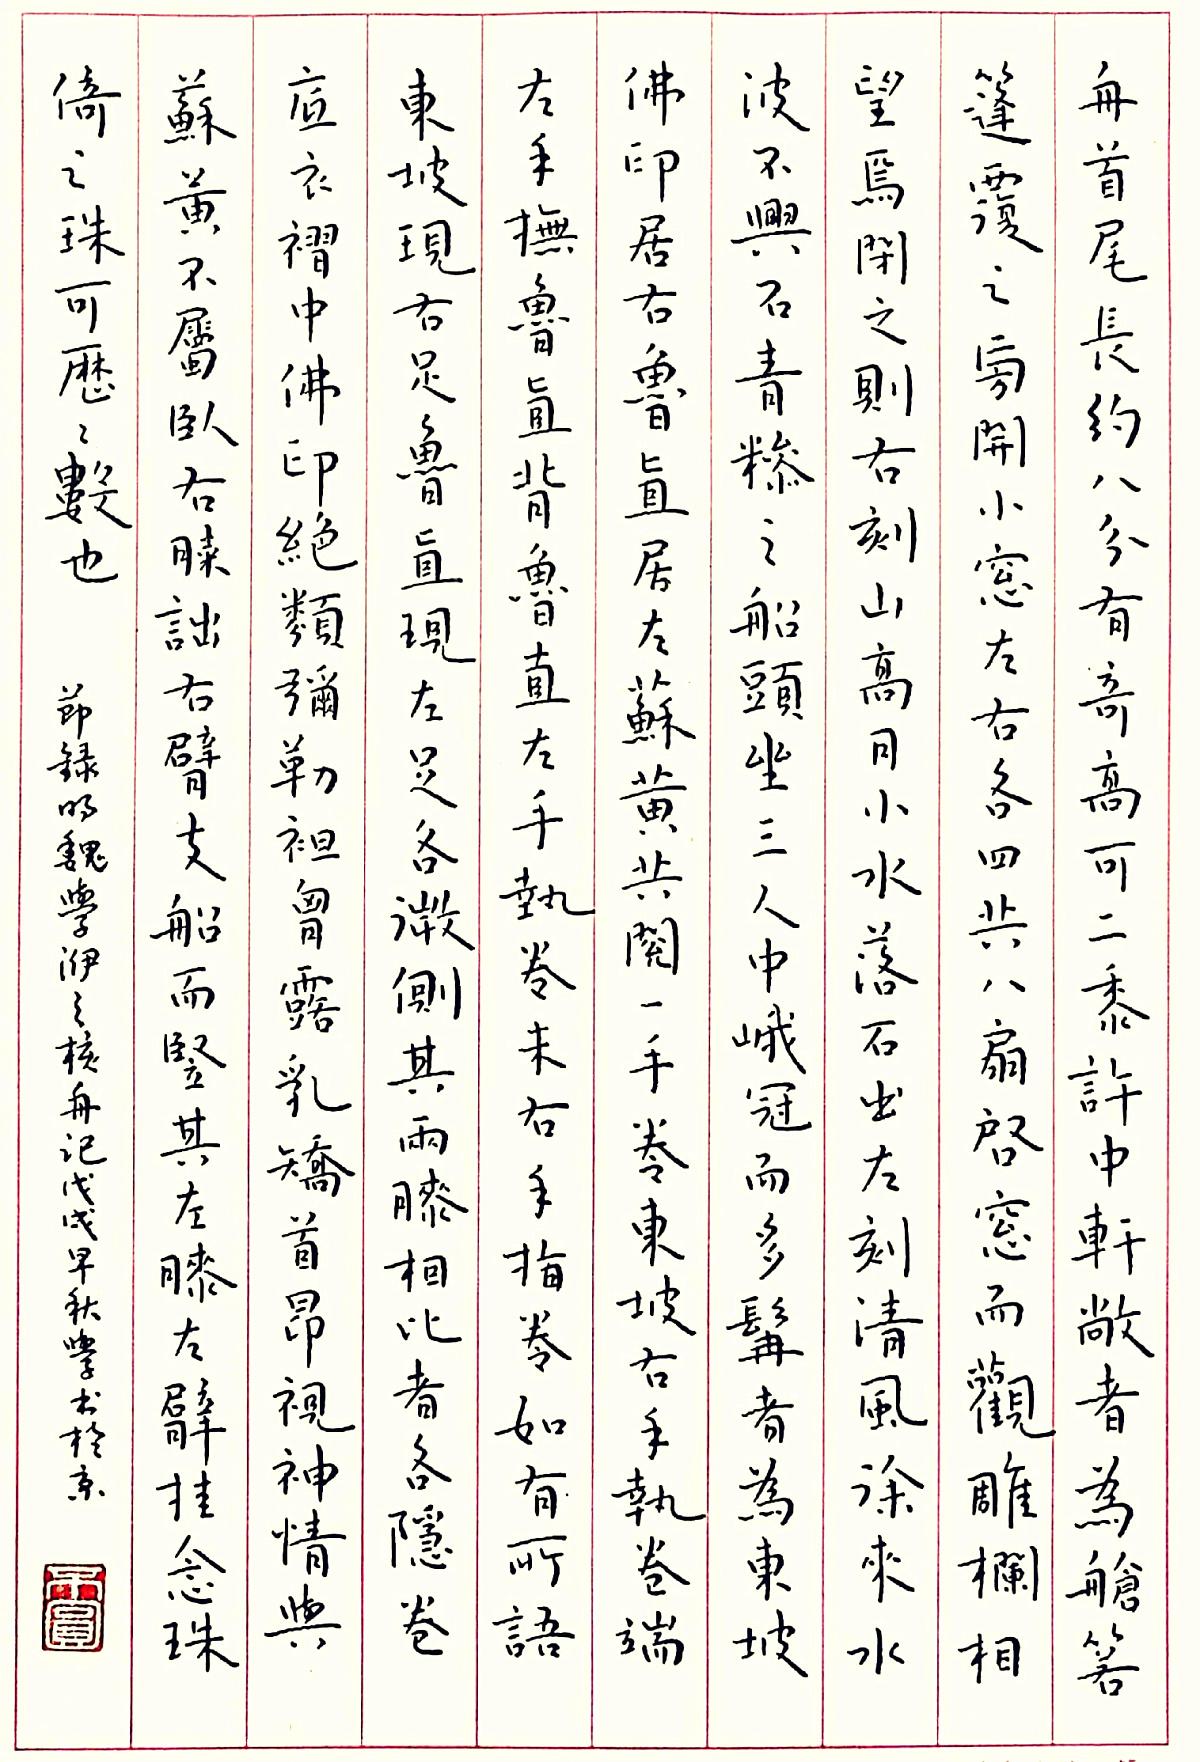 舟首尾長約八分有奇高可二黍許中軒敞者為艙箬
篷覆之旁開小窓左右各四共八扇啓窓而觀雕欄相
望焉閉之則右刻山高月小水落石出左刻清風徐來水
波不興石青糝之船頭坐三人中峨冠而多髯者為東坡
佛印居右魯直居左蘇黃共閱一手卷東坡右手執卷端
左手撫魯直背魯直左手執卷末右手指卷如有所語
東坡現右足魯直現左足各微側其兩膝相比者各隱卷
底衣褶中佛印絕類彌勒袒胷露乳矯首昂視神情與
蘇黃不屬臥右膝詘右臂支船而竪其左膝左臂挂念珠
倚之珠可歷〻數也
節録明魏學洢之核舟記戊戌早秋學书於京